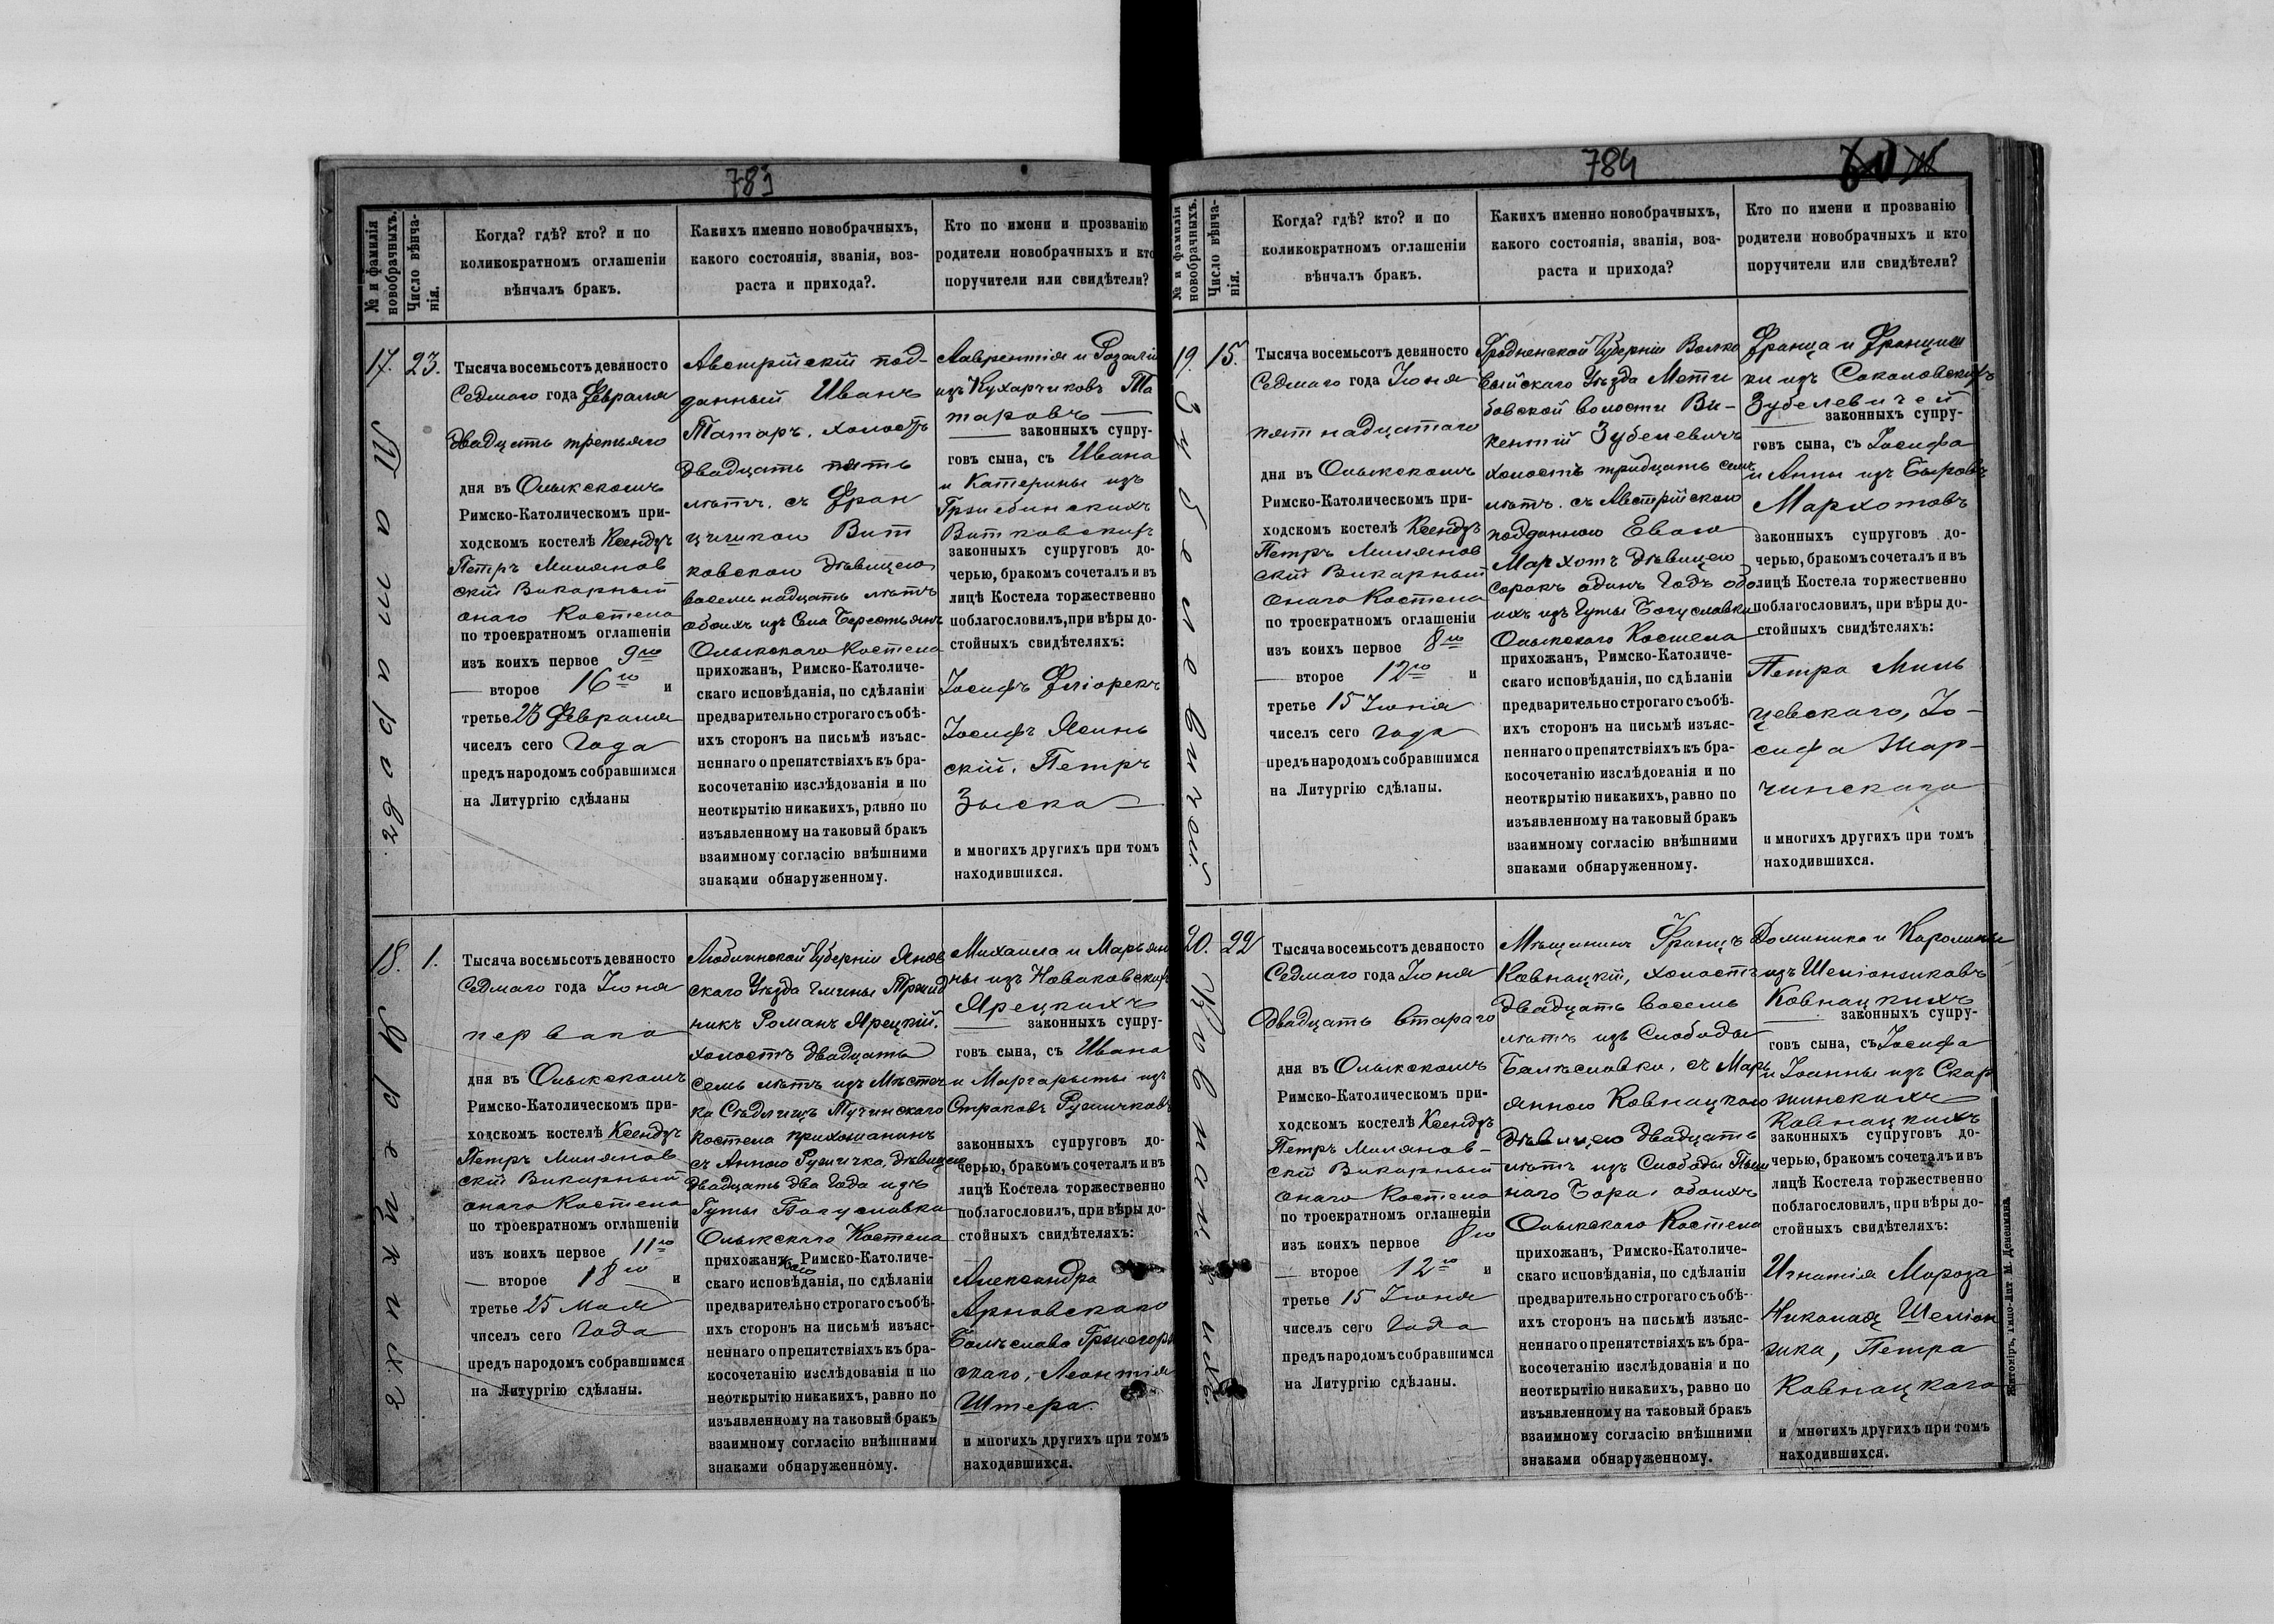 783
№ и фамилія новобрачныхъ.
Число вѣнча-
нія.
Когда? гдѣ? кто? и по
коликократномъ оглашеніи
вѣнчалъ бракъ.
Какихъ именно новобрачныхъ,
какого состоянія, званія, воз-
раста и прихода?.
Кто по имени и прозванію
родители новобрачныхъ и кто
поручители или свидѣтели?
17.
Татаровъ.
23.
Тысяча восемьсотъ девяносто
Седмаго года Февраля
двадцать третьяго
дня въ Олыкскомъ
Римско-Католическомъ при-
ходскомъ костелѣ Ксендзъ
Петръ Милянов
скій Викарный
онаго Костела
по троекратномъ оглашеніи
изъ коихъ первое 9го
— второе 16го и
третье 23 Февраля
чиселъ сего Года
предъ народомъ собравшимся
на Литургію сдѣланы
Австрійскій под-
данный Иванъ
Татаръ, холостъ
двадцать пять
лѣтъ, съ Фран
цишкою Вит
ковскою дѣвицею
восемнадцать лѣтъ
обоихъ изъ Села Берестьянъ
Олыкского Костела
прихожанъ, Римско-Католиче-
скаго исповѣданія, по сдѣланіи
предварительно строгаго съ обѣ-
ихъ сторонъ на письмѣ изъяс-
неннаго о препятствіяхъ къ бра-
косочетанію изслѣдованія и по
неоткрытію никакихъ, равно по
изъявленному на таковый бракъ
взаимному согласію внѣшними
знаками обнаруженному.
Лаврентія и Розаліи
изъ Кухарчиковъ Та
таровъ —
— законныхъ супру-
говъ сына, съ Ивана
и Катерины изъ
Гржебинскихъ
Витковскихъ
законныхъ супруговъ до-
черью, бракомъ сочеталъ и въ
лицѣ Костела торжественно
поблагословилъ, при вѣры до-
стойныхъ свидѣтеляхъ:
Іосифъ Фліорекъ
Іосифъ Ясинь
скій, Петръ
Зыска —
и многихъ другихъ при томъ
находившихся.
18.
Ярецкихъ
1.
Тысяча восьмьсотъ девяносто
Седмаго года Іюня
перваго
дня въ Олыкскомъ
Римско-Католическомъ при-
ходскомъ костелѣ Ксендзъ
Петръ Милянов
скій Викарный
онаго Костела
по троекратномъ оглашеніи
изъ коихъ первое 11го
— второе 18го и
третье 25 Мая
чиселъ сего Года
предъ народомъ собравшимся
на Литургію сдѣланы.
Люблинской Губерніи Янов
скаго Уѣзда Гмины Тржид
никъ Романъ Ярецкій,
холостъ двадцать
семь лѣтъ изъ Мѣстеч
ка Сѣдлищъ Тучинского
костела прихожанинъ
съ Анною Ружичка, дѣвицею
двадцать два Года изъ
Гуты Богуславки
Олыкскаго Костела
прихожан Римско-Католиче-
скаго исповѣданія, по сдѣланіи
предварительно строгаго съ обѣ-
ихъ сторонъ на письмѣ изъяс-
неннаго о препятствіяхъ къ бра-
косочетанію изслѣдованія и по
неоткрытію никакихъ, равно по
изъявленному на таковый бракъ
взаимному согласію внѣшними
знаками обнаруженному.
Михаила и Марьян
ны изъ Новаковскихъ
Ярецкихъ
— законныхъ супру-
говъ сына, съ Ивана
и Маргариты изъ
Страковъ Ружичковъ
законныхъ супруговъ до-
черью, бракомъ сочеталъ и въ
лицѣ Костела торжественно
поблагословилъ, при вѣры до-
стойныхъ свидѣтеляхъ:
Александра
Арновскаго
Болѣслава Гржегорж
скаго, Леонтія
Штера.
и многихъ другихъ при томъ
находившихся.
784
№ и фамилія новобрачныхъ.
Число вѣнча-
нія.
Когда? гдѣ? кто? и по
коликократномъ оглашеніи
вѣнчалъ бракъ.
Какихъ именно новобрачныхъ,
какого состоянія, званія, воз-
раста и прихода?
Кто по имени и прозванію
родители новобрачныхъ и кто
поручители или свидѣтели?
19.
Зубелевичей
15.
Тысяча восемьсотъ девяносто
Седмаго года Іюня
пятнадцатаго
дня въ Олыкскомъ
Римско-Католическомъ при-
ходскомъ костелѣ Ксендзъ
Петръ Милянов
скій Викарный
онаго Костела
по троекратномъ оглашеніи
изъ коихъ первое 8го
— второе 12го и
третье 15 Іюня
чиселъ сего Года
предъ народомъ собравшимся
на Литургію сдѣланы.
Гродненской Губерніи Волко
выйскаго Уѣзда Мсти
бовской волости Ви-
кентій Зубелевичъ
холостъ тридцать семь
лѣтъ. съ Австрійскою
подданною Евою
Мархотъ дѣвицею
сорокъ одинъ Годъ обо
ихъ изъ Гуты Богуславки
Олыкскаго Костела
прихожанъ, Римско-Католиче-
скаго исповѣданія, по сдѣланіи
предварительно строгаго съ обѣ-
ихъ сторонъ на письмѣ изъяс-
неннаго о препятствіяхъ къ бра-
косочетанію изслѣдованія и по
неоткрытію никакихъ, равно по
изъявленному на таковый бракъ
взаимному согласію внѣшними
знаками обнаруженному.
Франца и Францишк
ки изъ Соколовскихъ
Зубелевичей
— законныхъ супру-
говъ сына, съ Іосифа
и Анны изъ Быровъ
Мархотовъ
законныхъ супруговъ до-
черью, бракомъ сочеталъ и въ
лицѣ Костела торжественно
поблагословилъ, при вѣры до-
стойныхъ свидѣтеляхъ:
Петра Миль
цевскаго, Іо-
сифа Жар-
чинскаго
и многихъ другихъ при томъ
находившихся.
20.
Ковнацкихъ.
22
Тысяча восемьсотъ девяносто
Седмаго года Іюня
двадцать втораго
дня въ Олыкскомъ
Римско-Католическомъ при-
ходскомъ костелѣ Ксендзъ
Петръ Милянов-
скій Викарный
онаго Костела
по троекратномъ оглашеніи
изъ коихъ первое 8го
— второе 12го и
третье 15 Іюня
чиселъ сего Года
предъ народомъ собравшимся
на Литургію сдѣланы.
Мѣщанинъ Францъ
Ковнацкій, холостъ
двадцать восемь
лѣтъ изъ Слободы
Балѣсловки, съ Марь
янною Ковнацкою
дѣвицею двадцать
лѣтъ изъ Слободы Пыш
наго Бора, обоихъ
Олыкскаго Костела
прихожанъ, Римско-Католиче-
скаго исповѣданія, по сдѣланіи
предварительно строгаго съ обѣ-
ихъ сторонъ на письмѣ изъяс-
неннаго о препятствіяхъ къ бра-
косочетанію изслѣдованія и по
неоткрытію никакихъ, равно по
изъявленному на таковый бракъ
взаимному согласію внѣшними
знаками обнаруженному.
Доминика и Каролины
изъ Шеліонжиковъ
Ковнацкихъ
— законныхъ супру-
говъ сына, съ Іосифа
и Іоанны изъ Скар
жинскихъ
Ковнацкихъ
законныхъ супруговъ до-
черью, бракомъ сочеталъ и въ
лицѣ Костела торжественно
поблагословилъ, при вѣры до-
стойныхъ свидѣтеляхъ:
Игнатія Мороза
Николая Шеліон
жика, Петра
Ковнацкаго
и многихъ другихъ при томъ
находившихся.
Житоміръ, Типо-Лит. М. Дененмана.